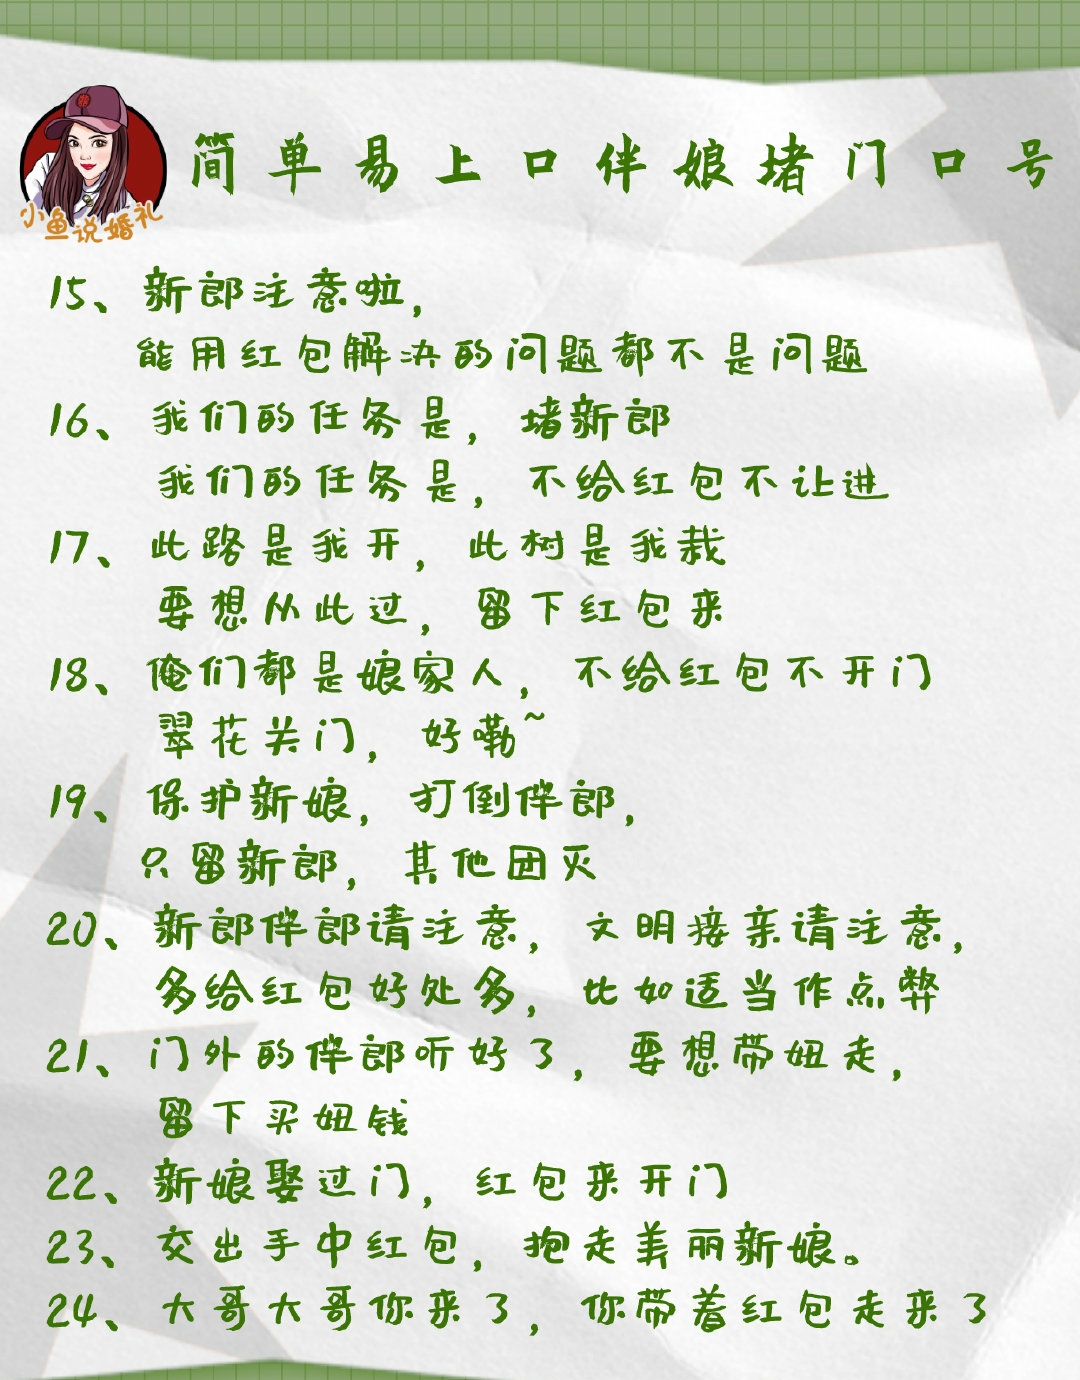 小鱼说婚礼
简单易上口伴娘堵门口号
15、新郎注意啦,
能用红包解决的问题都不是问题
16、我们的任务是,堵新郎
我们的任务是,不给红包不让进
17、此路是我开,此树是我栽
要想从此过,留下红包来
18、俺们都是娘家人,不给红包不开门
翠花关门,好嘞~
19、保护新娘,打倒伴郎,
只留新郎,其他团灭
20、新郎伴郎请注意,文明接亲请注意,
多给红包好处多,比如适当作点弊
21、门外的伴郎听好了,要想带妞走,
留下买妞钱
22、新娘娶过门,红包来开门
23、交出手中红包,抱走美丽新娘。
24、大哥大哥你来了,你带着红包走来了